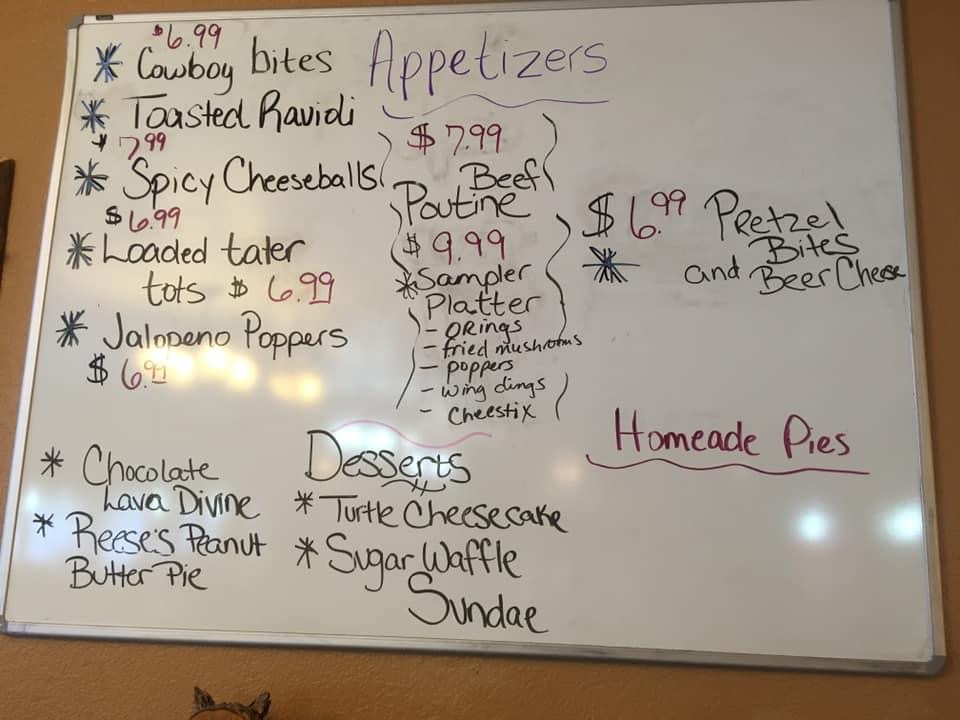 Appetizers
$6.99
* Cowboy bites
* Toasted Ravioli
$7.99
* Spicy Cheeseballs
$6.99
* Loaded tater
tots $6.99
* Jalopeno Poppers
$6.99
$7.99
Beef
Poutine
$9.99
* Sampler
Platter
- ORings
- fried mushrooms
- poppers
- wing dings
- Cheestix
$6.99 Pretzel
* Bites
and Beer Cheese
Desserts
* Chocolate
Lava Divine
* Reese's Peanut
Butter Pie
* Turtle Cheesecake
* Sugar Waffle
Sundae
Homeade Pies